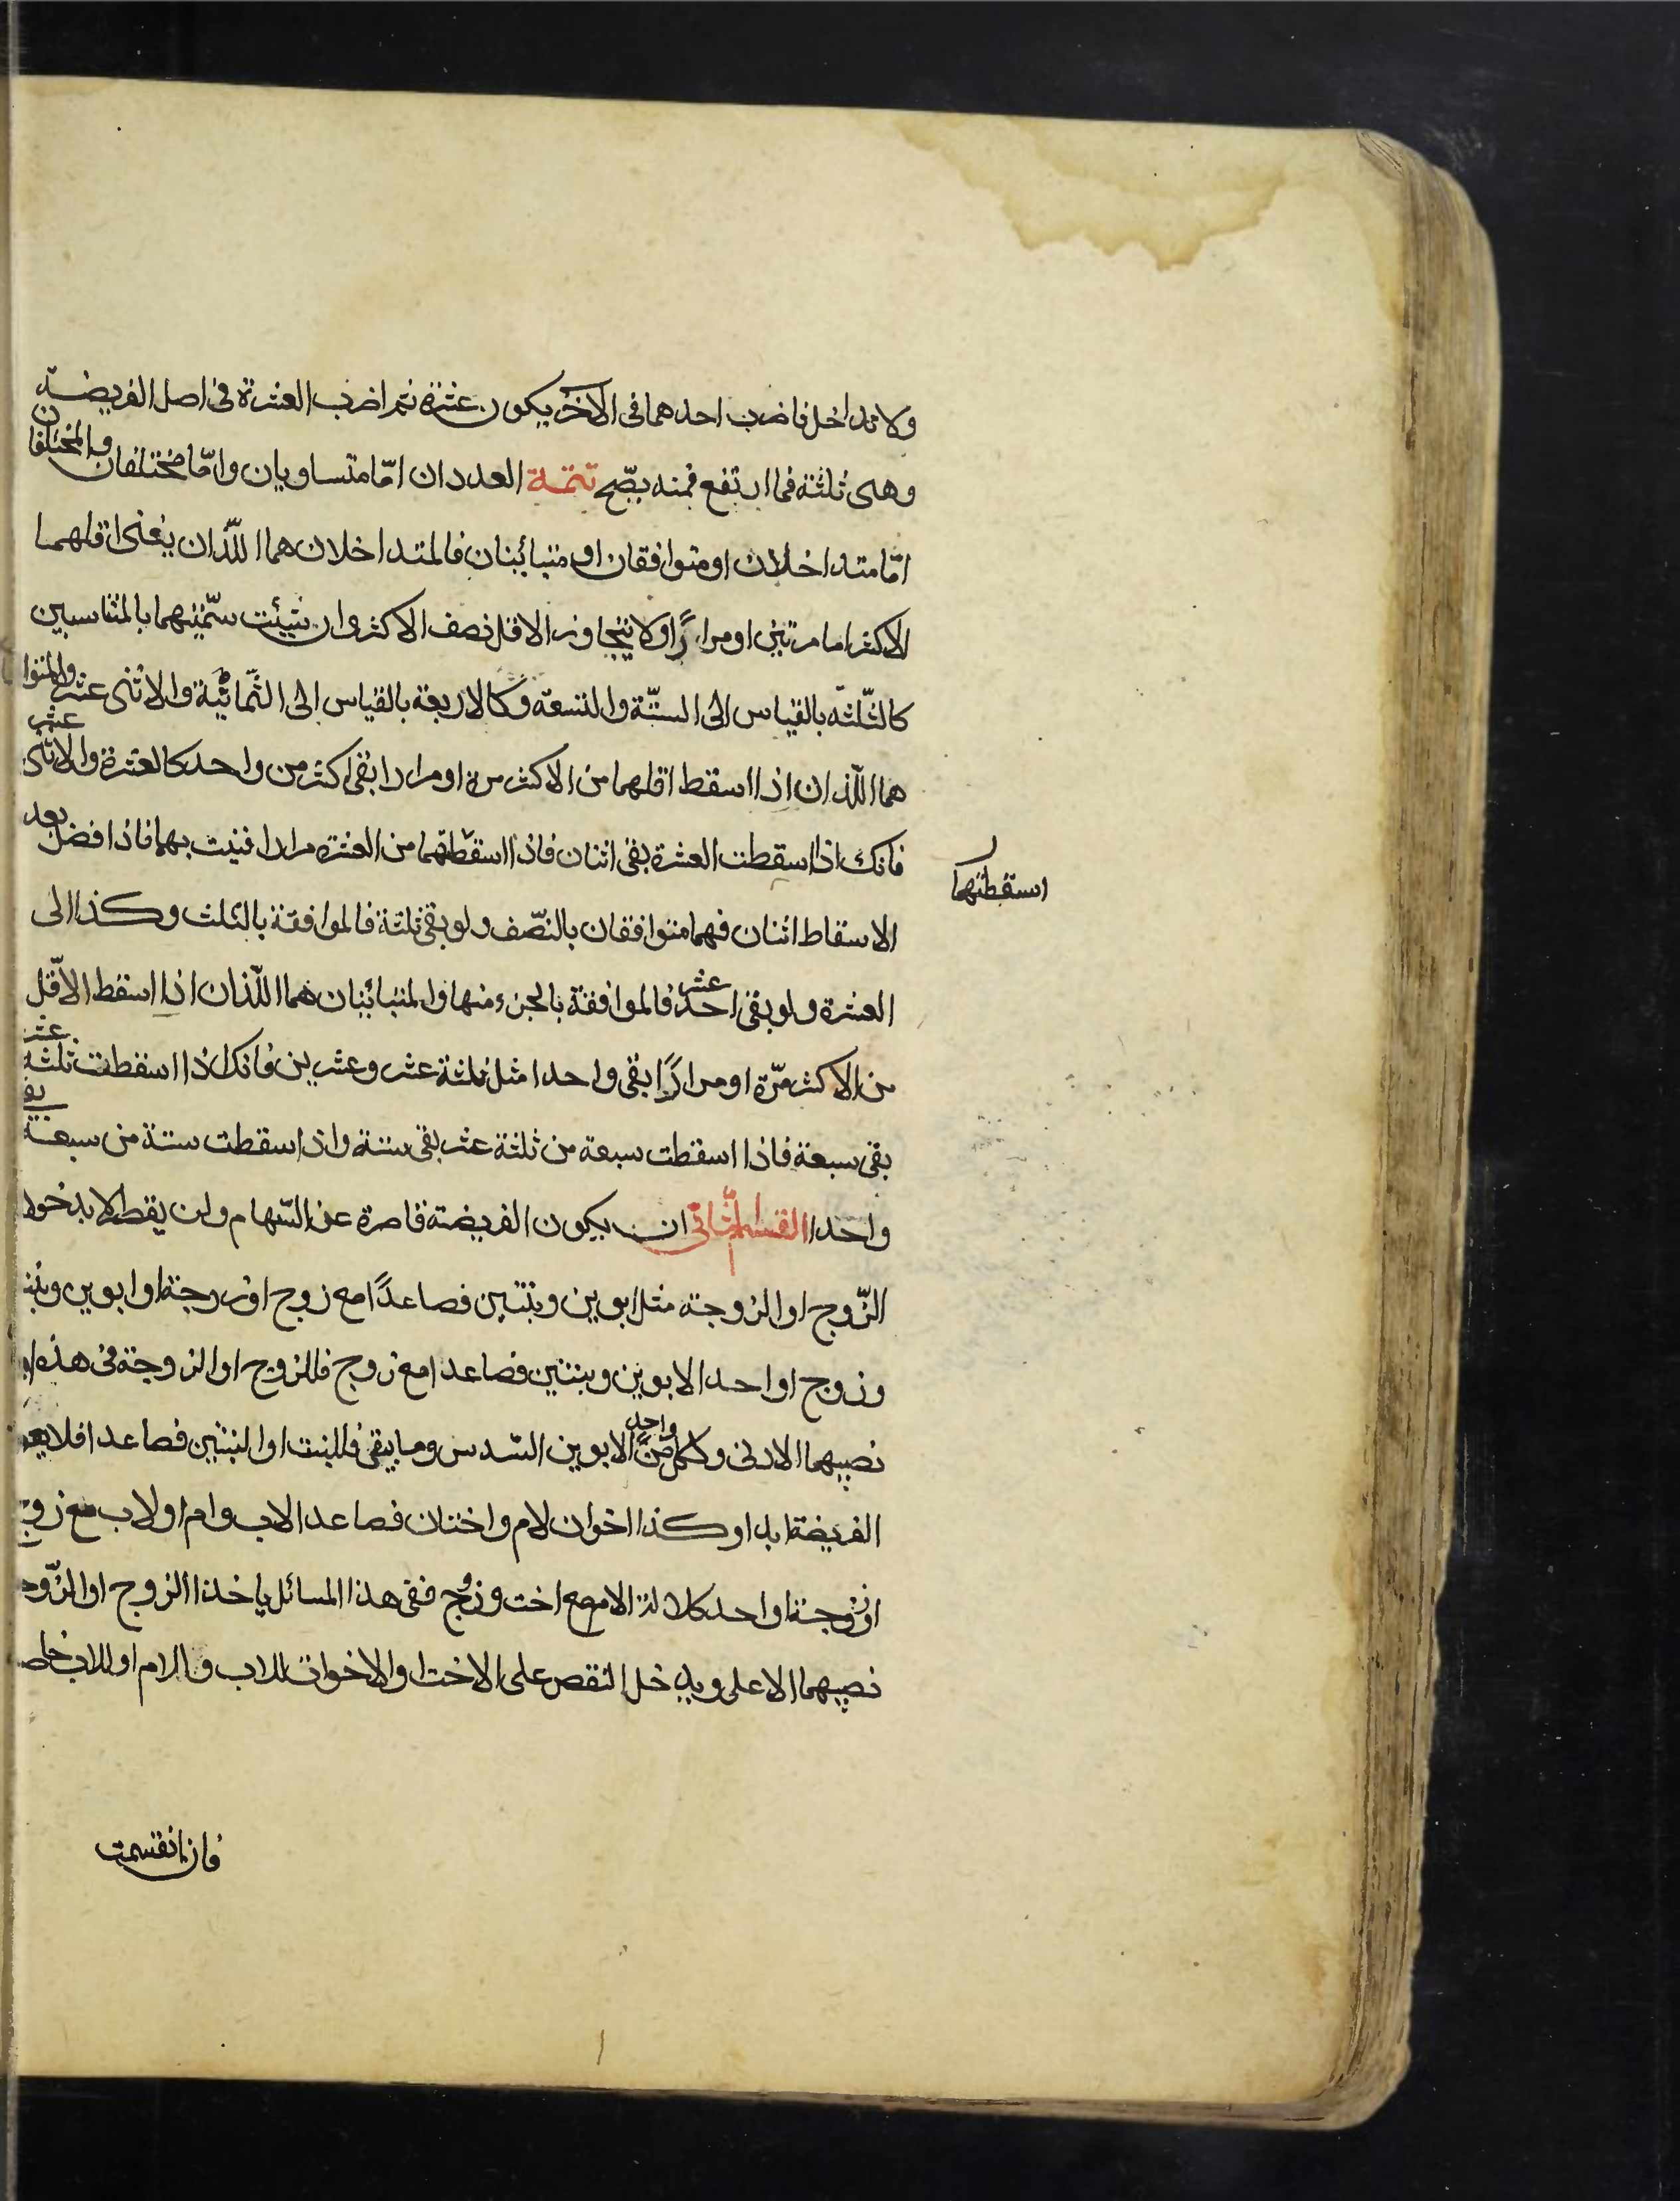 ولا تداخل فاضرب احدهما فى الاخر يكون عشرة ثم اضرب العشرة فى اصل الفريضة
وهى ثلثة فما ارتفع فمنه يصّح تتمة العددان امّا متساويان وامّا مختلفان والمختلفان
امّا متداخلان او متوافقان او متبائنان فالمتداخلان هما اللّذان يفنى اقلهما
الاكثر اما مرتين او مرارًا ولا يتجاوز الاقل نصف الاكثر وان شيئت سمّيتهما بالمتناسبين
كالثّلثه بالقياس الى الستّة والتسعة وكالاربعة بالقياس الى الثّمانية والاثنى عشر والمتوا
هما اللّذان اذا اسقط اقلهما من الاكثر مرة او مرارا بقى اكثر من واحد كالعشرة والاثنى عشر
فانك اذا اسقطت العشرة بقى اثنان فاذا اسقطتهما من العشرة مرارا فنيت بهما فاذا فضل بعد
اسقطتهما
الاسقاط اثنان فهما متوافقان بالنّصف ولو بقى ثلثة فالموافقة بالثلث وكذا الى
العشرة ولو بقى احد عشر فالموافقة بالجزء منها والمتبائنان هما اللّذان اذا اسقط الاّقل
من الاكثر مرّة او مرارًا بقى واحدا مثل ثلثة عشر وعشرين فانك اذا اسقطت ثلثة عشر
بقى سبعة فاذا اسقطت سبعة من ثلثة عشر بقى ستة واذا سقطت ستة من سبعة بقى
واحدا القسم الثّانى ان يكون الفريضة قاصرة عن السّهام ولن يقط الا بدخول
الزّوج او الزوجة مثل ابوين وبنتين فصاعدًا مع زوج او زوجة او ابوين وبنت
وزوج او احد الابوين وبنتين فصاعدا مع زوج فللزوج او الزوجة فى هذه
نصيبهما الادنى ولكل واحد من الابوين السّدس وما يبقى فللبنت او البنتين فصاعدا فلا يعو
الفريضة ابدا وكذا اخوان لام واختان فصاعدا لاب وام او لاب مع زوج
او زوجة او احد كلالة الام مع اخت وزوج ففى هذا المسائل ياخذ الزوج او الزّوجة
نصيبهما الاعلى ويدخل النقص على الاخت او الاخوات للاب والام او للاب خاصة
فان انقسمت